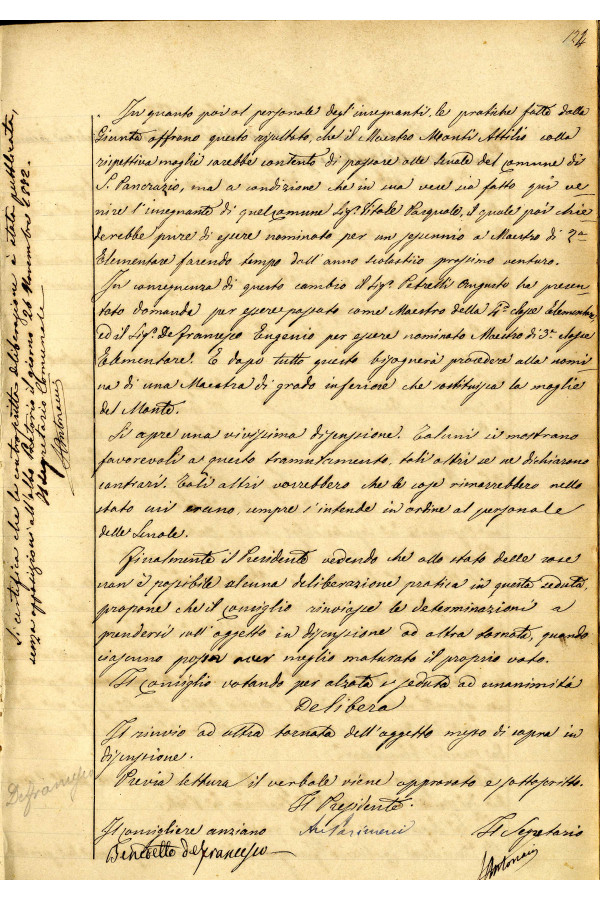 124
In quanto poi al personale degl'insegnanti, le pratiche fatte dalla
Giunta offrono questo risultato, che il Maestro Monti Attilio colla
rispettiva moglie sarebbe contento di passare alle Scuole del Comune di
S. Pancrazio, ma a condizione che in sua vece sia fatto quì ve-
nire l'insegnante di quel comune Sig.r Vitale Pasquale, il quale poi chie-
derebbe pure di essere nominato per un sessennio a Maestro di 2a
Elementare facendo tempo dall'anno scolastico prossimo venturo.
In conseguenza di questo cambio il Sig.r Petrelli Augusto ha presen-
tato domanda per essere passato come Maestro della 4a classe Elementare,
ed il Sig.r Defrancesco Eugenio per essere nominato Maestro di 3a classe
Elementare. E dopo tutto questo bisognerà procedere alla nomi-
na di una Maestra di grado inferiore che sostituisca la moglie
del Monti.
Si apre una vivissima discussione. Taluni si mostrano
favorevoli a questo tramutamento, tali altri se ne dichiarano
contrari. Tali altri vorrebbero che le cose rimarrebbero nello
stato cui erano, sempre s'intende in ordine al personale
delle Scuole.
Finalmente il Presidente vedendo che allo stato delle cose
non è possibile alcuna deliberazione pratica in questa seduta,
propone che il Consiglio rinviasse le determinazioni a
prendersi sull'oggetto in discussione ad altra tornata, quando
ciascuno possa aver meglio maturato il proprio voto.
Il Consiglio votando per alzata e seduta ad unanimità
Delibera
Il rinvio ad altra tornata dell'oggetto messo di sopra in
discussione.
Previa lettura il verbale viene approvato e sottoscritto.
Il Presidente
Il Consigliere anziano
Il Segretario
Benedetto de Francesco
Si certifica che la contrascritta deliberazione è stata pubblicata,
senza opposizioni all'albo Pretorio il giorno 26 Novembre 1882.
Il Segretario Comunale
Defrancesco